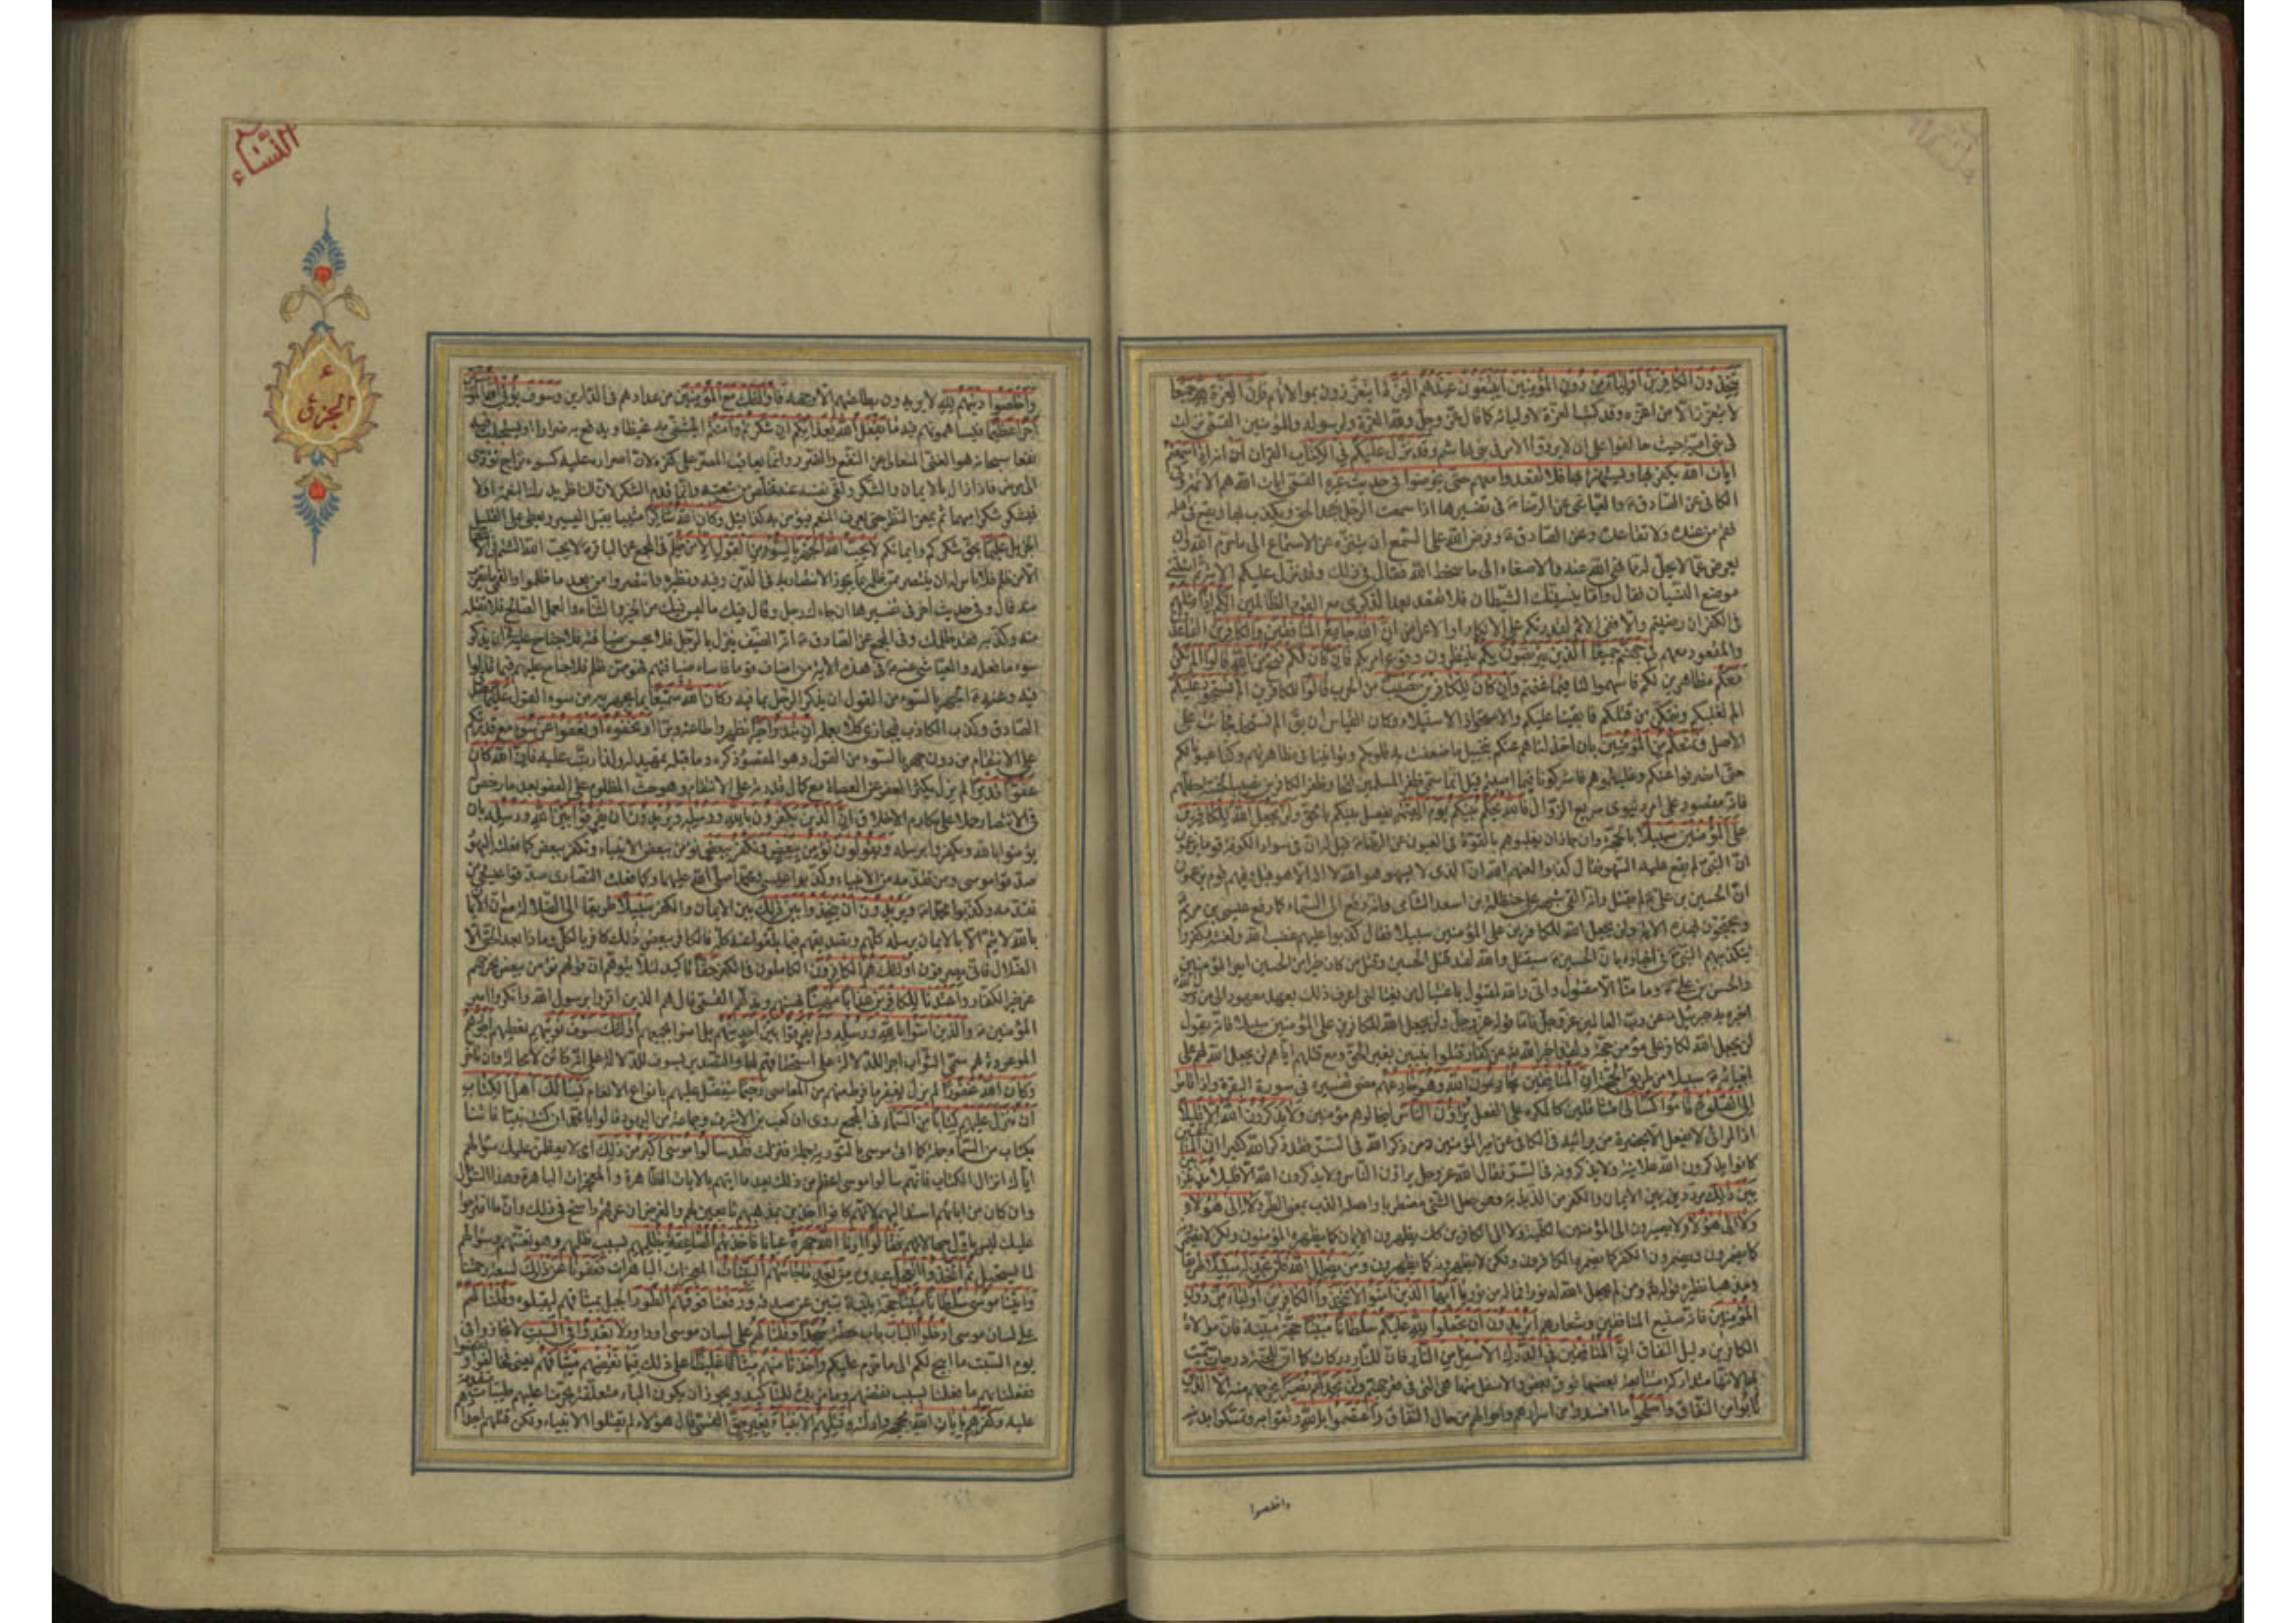 يتخذون الكافرين اولياء من دون المؤمنين ايبتغون عندهم العزة ايتعززون بموالاتهم فان العزة لله جميعا
لا يتعزز الا من اعزه وقد كتب العزة لاوليائه كما قال عز وجل ولله العزة ولرسوله وللمؤمنين القمي نزلت
في بني امية حيث حالفوا على ان لا يردوا الامر في بني هاشم وقد نزل عليكم في الكتاب القران ان اذا سمعتم
ايات الله يكفر بها ويستهزأ بها فلا تقعدوا معهم حتى يخوضوا في حديث غيره القمي ايات الله هم الائمة في
الكافي عن الصادق والعياشي عن الرضا في تفسيرها اذا سمعت الرجل يجحد الحق ويكذب به ويقع في اهله
فقم من عنده ولا تقاعده وعن الصادق وفرض الله على السمع ان يتنزه عن الاستماع الى ما حرم الله وان
يعرض عما لا يحل له مما نهى الله عنه والاصغاء الى ما سخط الله فقال في ذلك وقد نزل عليكم الاية ثم استثنى
موضع النسيان فقال واما ينسينك الشيطان فلا تقعد بعد الذكرى مع القوم الظالمين انكم اذا مثلهم
في الكفر ان رضيتم والا ففي الاثم لقدرتكم على الانكار او الاعراض ان الله جامع المنافقين والكافرين القاعدين
والمقعود معهم في جهنم جميعا الذين يتربصون بكم ينتظرون وقوع امر بكم فان كان لكم فتح من الله قالوا الم نكن
معكم مظاهرين لكم فاسهموا لنا فيما غنمتم وان كان للكافرين نصيب من الحرب قالوا للكافرين الم نستحوذ عليكم
الم نغلبكم ونتمكن من قتلكم فابقينا عليكم والاستحواذ الاستيلاء وكان القياس ان يق الم نستحذ فجائت على
الاصل ونمنعكم من المؤمنين بان اخذلناهم عنكم بتخييل ما ضعفت به قلوبكم وتوانينا في مظاهرتهم وكنا عيونا لكم
حتى انصرفوا عنكم وغلبتموهم فاشركونا فيما اصبتم قيل انما سمي ظفر المسلمين فتحا وظفر الكافرين نصيبا لخسة حظهم
فانه مقصور على امر دنيوي سريع الزوال فالله يحكم بينكم يوم القيمة يفصل بينكم بالحق ولن يجعل الله للكافرين
على المؤمنين سبيلا بالحجة وان جاز ان يغلبوهم بالقوة في العيون عن الرضا قيل له ان في سواد الكوفة قوما يزعمون
ان النبي لم يقع عليه السهو فقال كذبوا لعنهم الله ان الذي لا يسهو هو الله لا اله الا هو قيل وفيهم قوم يزعمون
ان الحسين بن علي لم يقتل وانه القي شبهه على حنظلة بن اسعد الشامي وانه رفع الى السماء كما رفع عيسى بن مريم
ويحتجون بهذه الاية ولن يجعل الله للكافرين على المؤمنين سبيلا فقال كذبوا عليهم غضب الله ولعنته وكفروا
بتكذيبهم النبي في اخباره بان الحسين سيقتل والله لقد قتل الحسين وقتل من كان خيرا من الحسين امير المؤمنين
والحسن بن علي وما منا الا مقتول واني والله لمقتول باغتيال من يغتالني اعرف ذلك بعهد معهود الي من رسول الله
اخبره به جبرئيل عن رب العالمين عز وجل فاما قوله عز وجل ولن يجعل الله للكافرين على المؤمنين سبيلا فانه يقول
لن يجعل الله لكافر على مؤمن حجة ولقد اخبر الله عن كفار قتلوا نبيين بغير الحق ومع قتلهم اياهم لن يجعل الله لهم على
انبيائه سبيلا من طريق الحجة ان المنافقين يخادعون الله وهو خادعهم مضى تفسيره في سورة البقرة واذا قاموا
الى الصلوة قاموا كسالى متثاقلين كالمكره على الفعل يراؤن الناس ليخالوهم مؤمنين ولا يذكرون الله الا قليلا
اذ المرائي لا يفعل الا بحضرة من يرائيه في الكافي عن امير المؤمنين من ذكر الله في السر فقد ذكر الله كثيرا ان المنافقين
كانوا يذكرون الله علانية ولا يذكرونه في السر فقال الله عز وجل يراؤن الناس ولا يذكرون الله الا قليلا مذبذبين
بين ذلك مرددين بين الايمان والكفر من الذبذبة وهو جعل الشيء مضطربا واصله الذب بمعنى الطرد لا الى هؤلاء
ولا الى هؤلاء لا يصيرون الى المؤمنين بالكلية ولا الى الكافرين كك يظهرون الايمان كما يظهره المؤمنون ولكن لا يضمرون
كما يضمرون ويضمرون الكفر كما يضمره الكافرون ولكن لا يظهرونه كما يظهرون ومن يضلل الله فلن تجد له سبيلا طريقا
ومذهبا نظيره قوله ومن لم يجعل الله له نورا فما له من نور يا ايها الذين امنوا لا تتخذوا الكافرين اولياء من دون
المؤمنين فانه صنيع المنافقين وشعارهم اتريدون ان تجعلوا لله عليكم سلطانا مبينا حجة بينة فان موالاة
الكافرين دليل النفاق ان المنافقين في الدرك الاسفل من النار فان للنار دركات كما ان للجنة درجات سميت
بها لانها متداركة متتابعة بعضها فوق بعض والاسفل منها هي التي في قعر جهنم ولن تجد لهم نصيرا يخرجهم منه الا الذين
تابوا من النفاق واصلحوا ما افسدوا من اسرارهم واحوالهم من حال النفاق واعتصموا بالله وثقوا به وتمسكوا بدينه
واخلصوا
النساء
الجزء
واخلصوا دينهم لله لا يريدون بطاعتهم الا وجهه فاولئك مع المؤمنين من عدادهم في الدارين وسوف يؤتي الله المؤمنين
اجرا عظيما فيساهمونهم فيه ما يفعل الله بعذابكم ان شكرتم وامنتم ايتشفى به غيظا او يدفع به ضررا او يستجلب به
نفعا سبحانه هو الغني المتعالي عن النفع والضر وانما يعاقب المصر على كفره لان اصراره عليه كسوء مزاج يؤدي
الى مرض فاذا زال بالايمان والشكر ونقى نفسه عنه تخلص من تبعته وانما قدم الشكر لان الناظر يدرك النعمة اولا
فيشكر شكرا مبهما ثم يمعن النظر حتى يعرف المنعم فيؤمن به كذا قيل وكان الله شاكرا مثيبا يقبل اليسير ويعطي على القليل
الجزيل عليما بحق شكركم وايمانكم لا يحب الله الجهر بالسوء من القول الا من ظلم في المجمع عن الباقر لا يحب الله الشتم في الانتصار
الا من ظلم فلا باس له ان ينتصر ممن ظلمه بما يجوز الانتصار به في الدين وفيه ونظيره وانتصروا من بعد ما ظلموا والقمي ما يقرب
منه قال وفي حديث اخر في تفسير هذا ان جاءك رجل وقال فيك ما ليس فيك من الخير والثناء والعمل الصالح فلا تقبله
منه وكذبه فقد ظلمك وفي المجمع عن الصادق انه الضيف ينزل بالرجل فلا يحسن ضيافته فلا جناح عليه في ان يذكر
سوء ما فعله والعياشي عنه في هذه الاية من اضاف قوما فاساء ضيافتهم فهو ممن ظلم فلا جناح عليهم فيما قالوا
فيه وعنه الجهر بالسوء من القول ان يذكر الرجل بما فيه وكان الله سميعا لما يجهر به من سوء القول عليما بصدق
الصادق وكذب الكاذب فيجازي كلا بعمله ان تبدوا خيرا تظهروا طاعة وبرا او تخفوه او تعفوا عن سوء مع قدرتكم
على الانتقام من دون جهر بالسوء من القول وهو المقصود ذكره وما قبله تمهيد له ولذا رتب عليه فان الله كان
عفوا قديرا لم يزل يكثر العفو عن العصاة مع كمال قدرته على الانتقام وهو حث المظلوم على العفو بعد ما رخص
في الانتصار حملا على مكارم الاخلاق ان الذين يكفرون بالله ورسله ويريدون ان يفرقوا بين الله ورسله بان
يؤمنوا بالله ويكفروا برسله ويقولون نؤمن ببعض ونكفر ببعض نؤمن ببعض الانبياء ونكفر ببعض كما فعلت اليهود
صدقوا موسى ومن تقدمه من الانبياء وكذبوا عيسى ومحمدا صلى الله عليهما وكما فعلت النصارى صدقوا عيسى ومن
تقدمه وكذبوا محمدا ويريدون ان يتخذوا بين ذلك بين الايمان والكفر سبيلا طريقا الى الضلالة مع ان الايمان
بالله لا يتم الا بالايمان برسله كلهم وتصديقهم فيما بلغوا عنه كله فالكافر ببعض ذلك كافر بالكل وماذا بعد الحق الا
الضلال فانى تصرفون اولئك هم الكافرون الكاملون في الكفر حقا تاكيد لئلا يتوهم ان قولهم نؤمن ببعض يخرجهم
عن حيز الكفار واعتدنا للكافرين عذابا مهينا يهينهم ويذلهم القمي قال هم الذين اقروا برسول الله وانكروا امير
المؤمنين والذين امنوا بالله ورسله ولم يفرقوا بين احد منهم بل امنوا بجميعهم اولئك سوف نؤتيهم نعطيهم اجورهم
الموعودة لهم سمي الثواب اجرا للدلالة على استحقاقهم لها والتصدير بسوف للدلالة على انه كائن لا محالة وان تاخر
وكان الله غفورا لم يزل يغفر ما فرط منهم من المعاصي رحيما يتفضل عليهم بانواع الانعام يسئلك اهل الكتاب
ان تنزل عليهم كتابا من السماء في المجمع روي ان كعب بن الاشرف وجماعة من اليهود قالوا يا محمد ان كنت نبيا فاتنا
بكتاب من السماء جملة كما اتى موسى بالتورية جملة فنزلت فقد سالوا موسى اكبر من ذلك اي لا يعظمن عليك سؤالهم
اياك انزال الكتاب فانهم سالوا موسى اعظم من ذلك بعد ما اتيهم بالايات الظاهرة والمعجزات الباهرة وهذا السؤال
وان كان من ابائهم اسند اليهم لانهم كانوا اخذين بمذهبهم تابعين لهم والغرض ان عرقهم راسخ في ذلك وان ما اقترحوا
عليك ليس باول جهالاتهم فقالوا ارنا الله جهرة عيانا فاخذتهم الصاعقة بظلمهم بسبب ظلمهم وهو تعنتهم وسؤالهم
لما يستحيل ثم اتخذوا العجل عبدوه من بعد ما جاءتهم البينات المعجزات الباهرات فعفونا عن ذلك لسعة رحمتنا
واتينا موسى سلطانا مبينا حجة بينة تبين عن صدقه ورفعنا فوقهم الطور الجبل بميثاقهم ليقبلوه وقلنا لهم
على لسان موسى ادخلوا الباب باب حطة سجدا وقلنا لهم على لسان موسى او داود لا تعدوا في السبت لا تجاوزوا في
يوم السبت ما ابيح لكم الى ما حرم عليكم واخذنا منهم ميثاقا غليظا على ذلك فبما نقضهم ميثاقهم يعني فخالفوا ونقضوا
ففعلنا بهم ما فعلنا بسبب نقضهم وما مزيدة للتاكيد ويجوز ان يكون الباء متعلقة بحرمنا عليهم طيبات
عليه وكفرهم بايات الله بحججه وادلته وقتلهم الانبياء بغير حق القمي قال هؤلاء لم يقتلوا الانبياء ولكن قتلهم اجدادهم